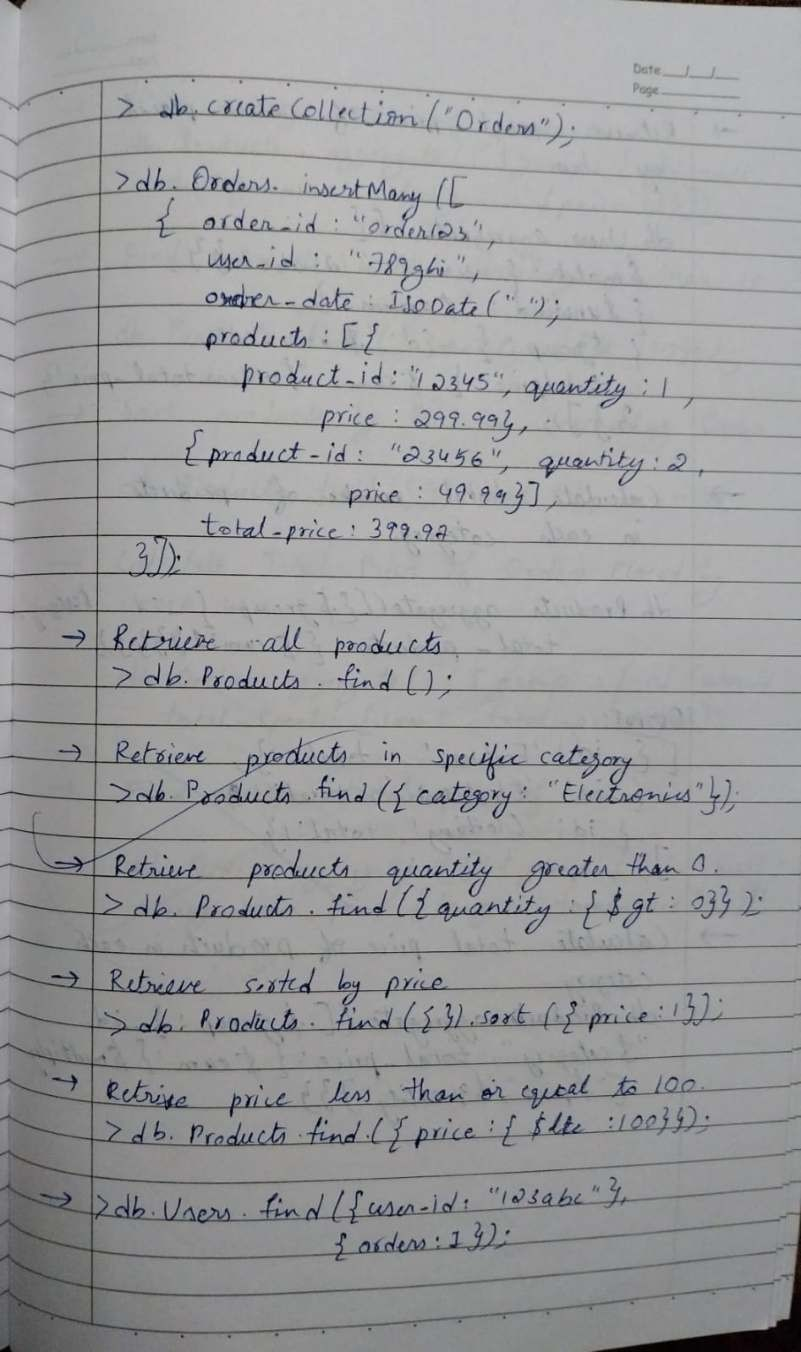 Date __/__/__
Page ______
> db.createCollection("Orders");
> db. Orders. insertMany ([
{ order_id : "order123",
user_id : "789ghi",
order_date : ISODate(" ");
products : [ {
product_id : "12345", quantity : 1,
price : 299.99},
{ product_id : "23456", quantity : 2,
price : 49.99}],
total_price : 399.97
}]);
→ Retrieve all products
> db. Products . find ();
→ Retrieve products in specific category
> db. Products . find ({ category : "Electronics" });
→ Retrieve products quantity greater than 0.
> db. Products . find ({ quantity : { $gt : 0}} );
→ Retrieve sorted by price
> db. Products . find ({ }). sort ({ price : 1});
→ Retrive price less than or equal to 100.
> db. Products . find .({ price : { $lte : 100}});
→ > db. Users . find ({user_id : "123abc"},
{ orders : 1 });